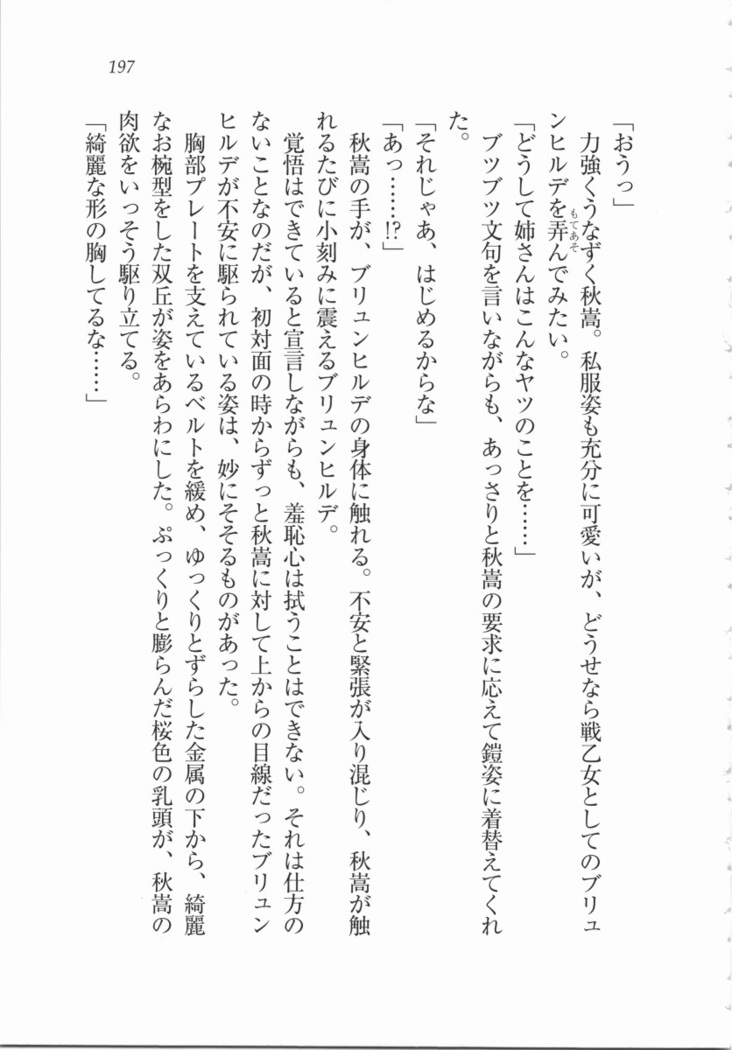 197
「おうっ」
　力強くうなずく秋嵩。私服姿も充分に可愛いが、どうせなら戦乙女としてのブリュ
ンヒルデを弄んでみたい。
「どうして姉さんはこんなヤツのことを……」
　ブツブツ文句を言いながらも、あっさりと秋嵩の要求に応えて鎧姿に着替えてくれ
た。
「それじゃあ、はじめるからな」
「あっ……!?」
　秋嵩の手が、ブリュンヒルデの身体に触れる。不安と緊張が入り混じり、秋嵩が触
れるたびに小刻みに震えるブリュンヒルデ。
　覚悟はできていると宣言しながらも、羞恥心は拭うことはできない。それは仕方の
ないことなのだが、初対面の時からずっと秋嵩に対して上からの目線だったブリュン
ヒルデが不安に駆られている姿は、妙にそそるものがあった。
　胸部プレートを支えているベルトを緩め、ゆっくりとずらした金属の下から、綺麗
なお椀型をした双丘が姿をあらわにした。ぷっくりと膨らんだ桜色の乳頭が、秋嵩の
肉欲をいっそう駆り立てる。
「綺麗な形の胸してるな……」